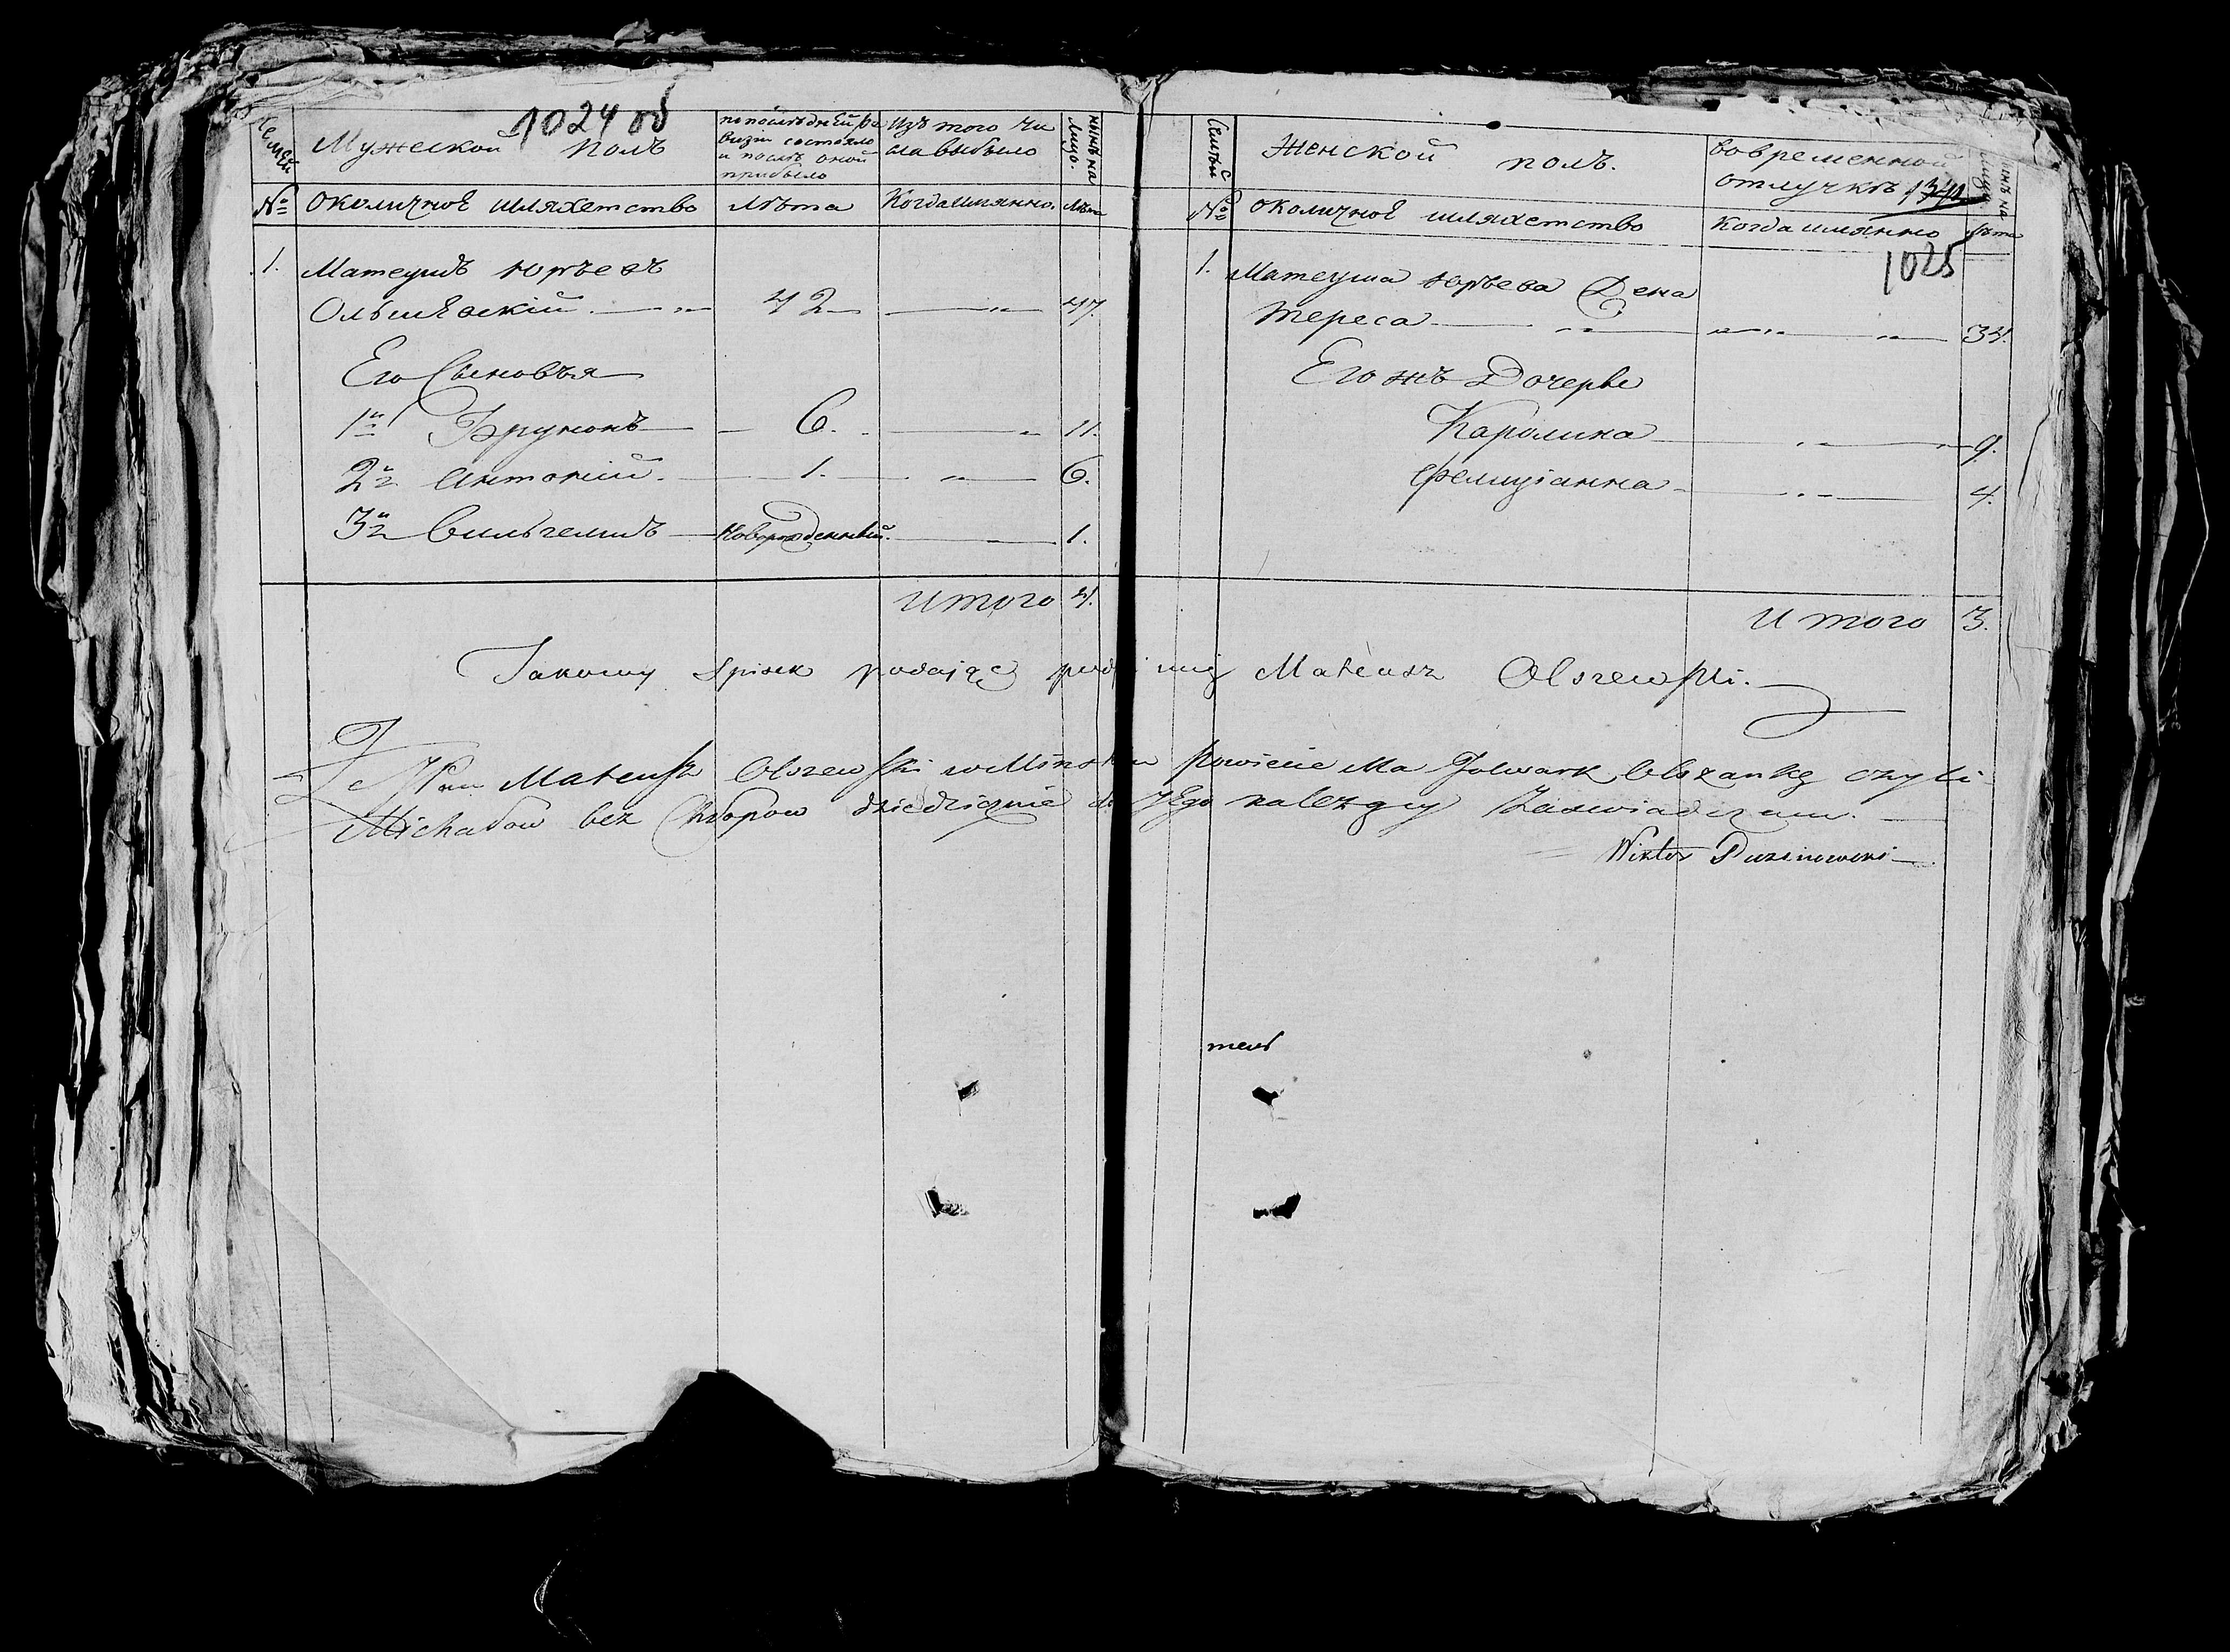 1024 об
Семей
Мужеской полъ
по последней ре
визіи состояло
и после оной
прибыло
Изъ того чи
сла выбыло
ныне на
Лицо.
№
околичное шляхетство
лѣта
Когда имянно.
лѣта
1. Матеушъ Юрьевъ
Ольшевскій. 42 47.
Его Сыновья
1й Брунонъ 6. 11.
2й Антоній. 1. 6.
3й Вильгельмъ Новорожденный. 1.
Итого 4.
Семьи
Женской полъ.
во временной
отлучкѣ
№
околичное шляхетство
когда имянно
лѣта
1025
1. Матеуша Юрьева Жена
Тереса 34.
Его жъ Дочери
Каролина 9.
Фелиціанна 4.
Итого 3.
Takowy Spisek podaiąc Mateusz Olszewski.
Mateusz Olszewski w Mińskim Powiecie Ma Folwark Olszankę czyli
Michałow bez Chłopow dziedzicznie do Jego należący Zaswiadczam.
Wiktor